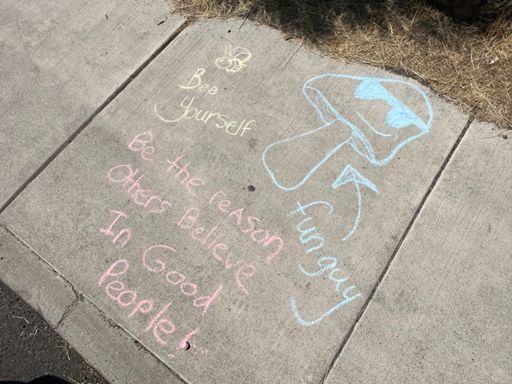 Bee
Yourself
Be the reason
Others Believe
In Good
People!
fun guy